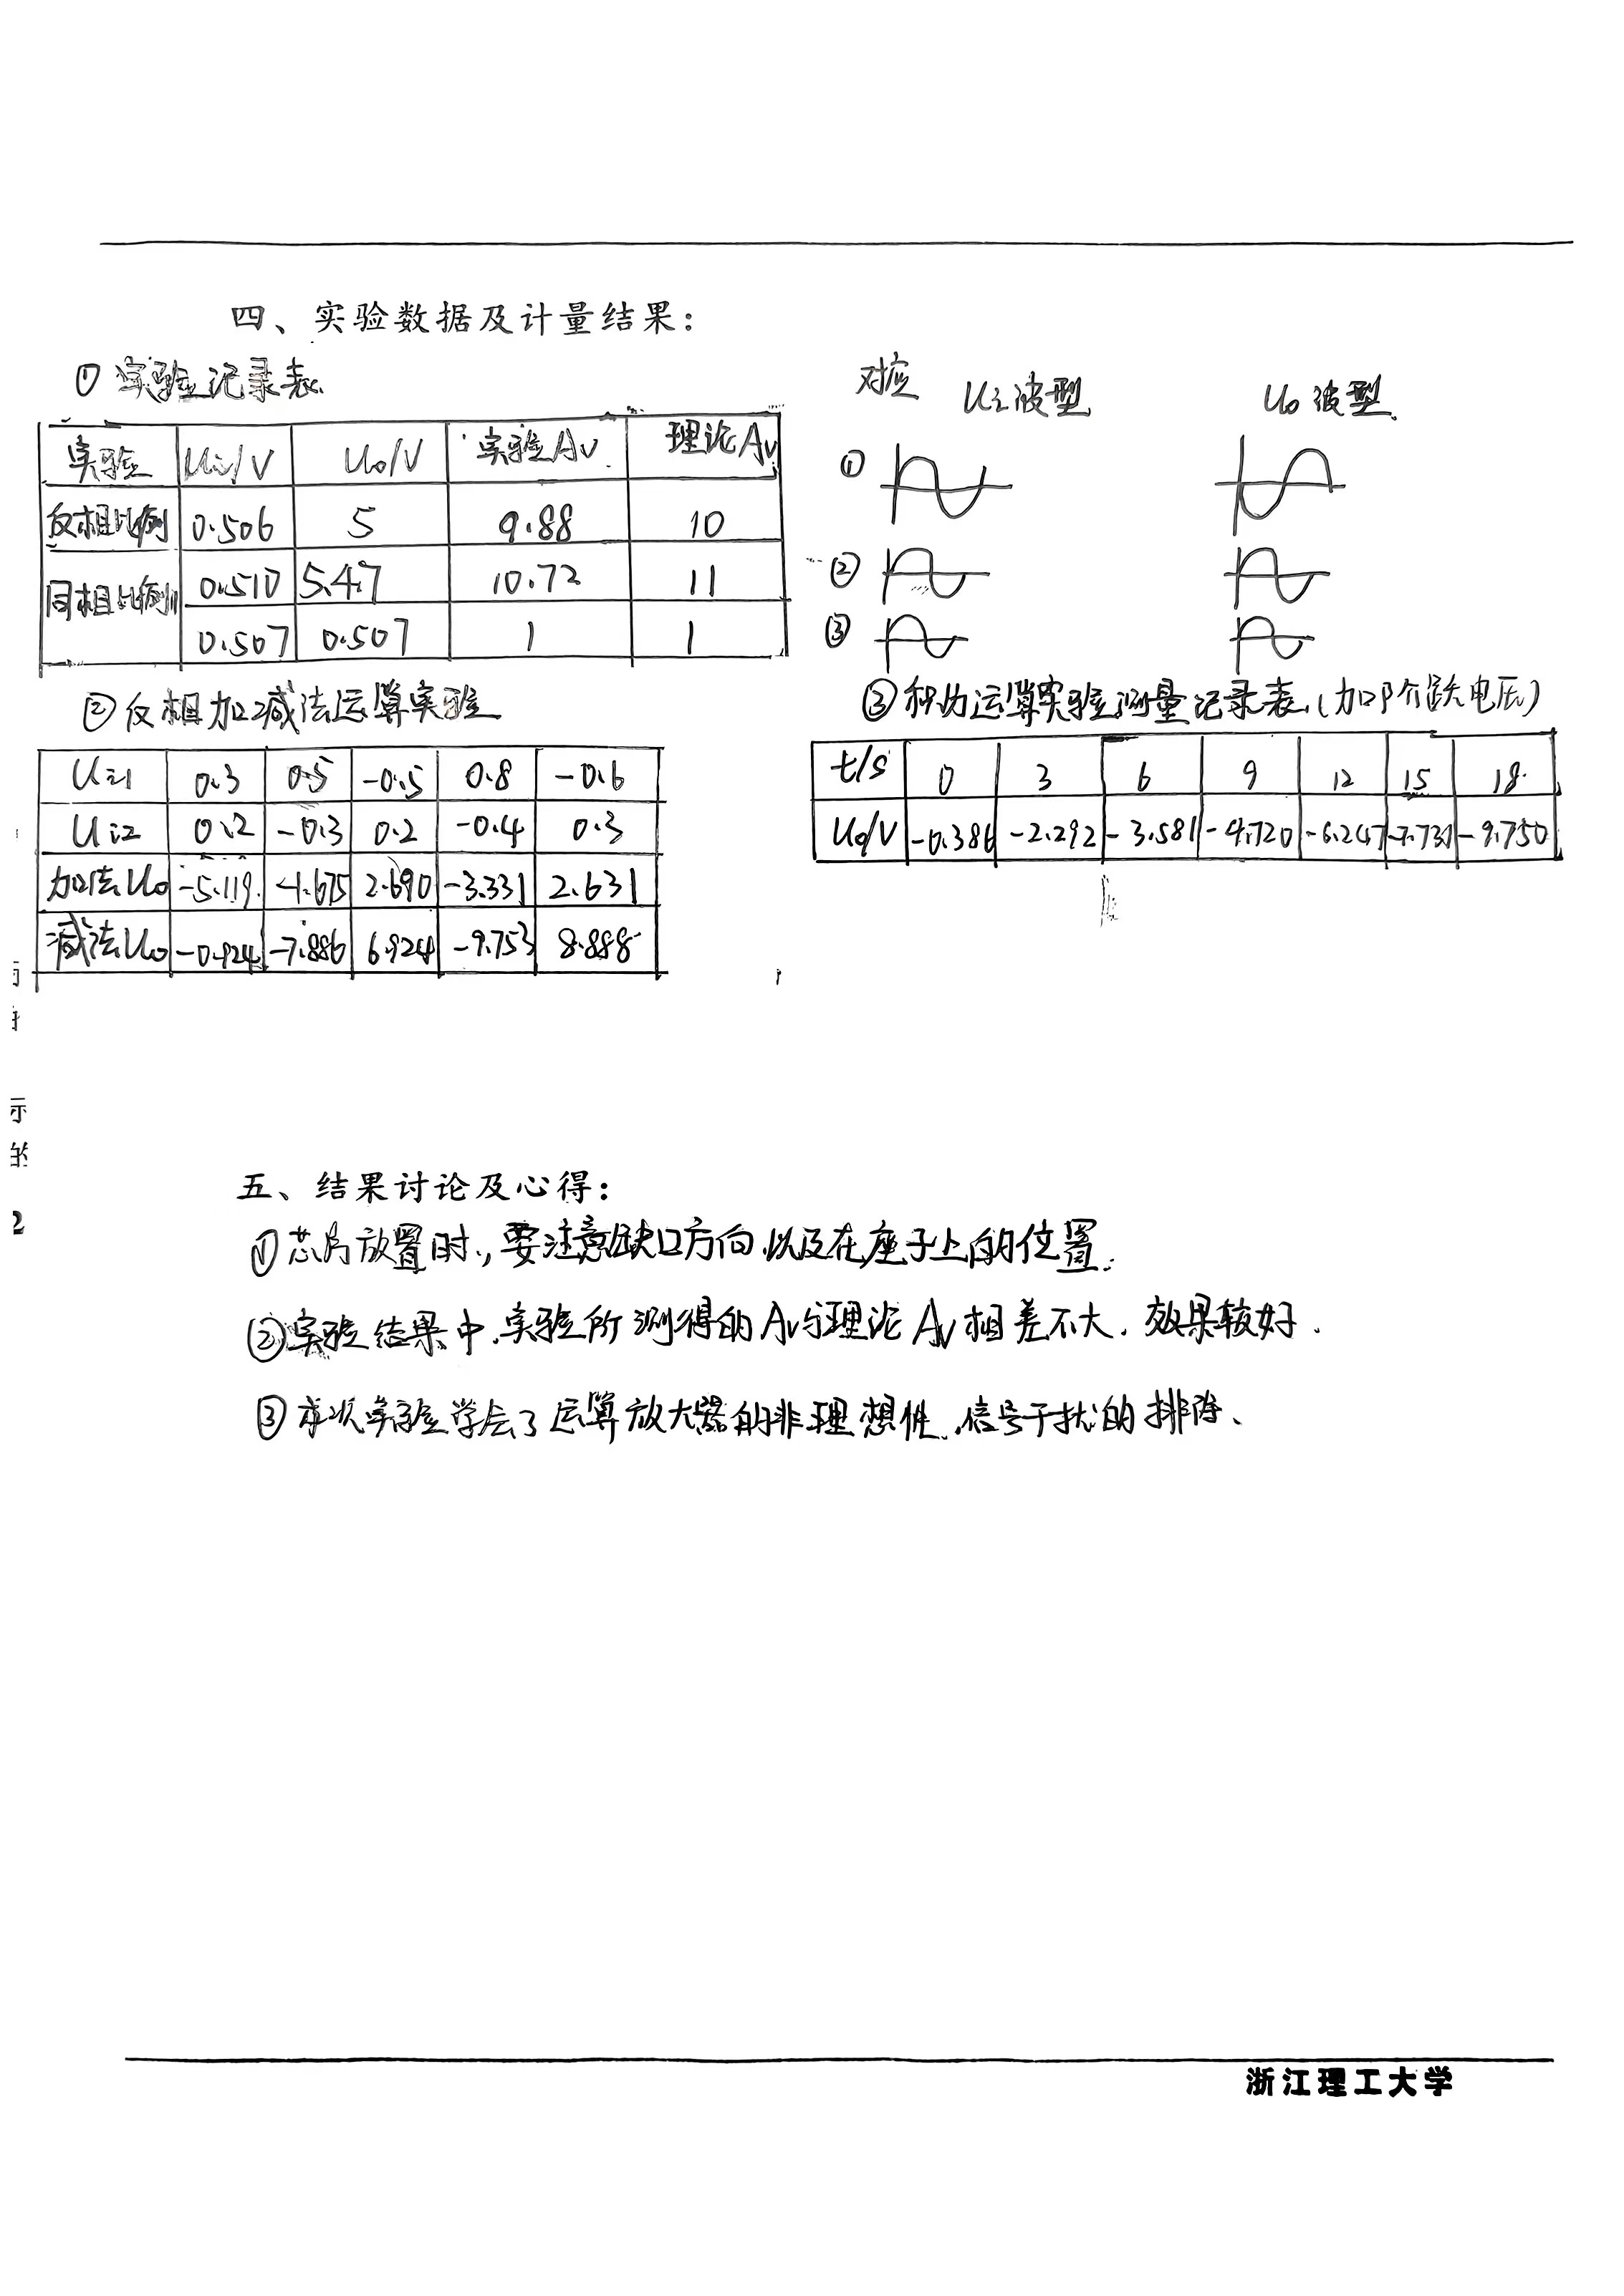 四、实验数据及计量结果:
① 实验记录表
实验 Ui/V Uo/V 实验Av 理论Av
反相比例 0.506 5 9.88 10
同相比例 0.510 5.47 10.72 11
0.507 0.507 1 1
对应 Ui波型 Uo波型
①
②
③
② 反相加减法运算实验
Ui1 0.3 0.5 -0.5 0.8 -0.6
Ui2 0.2 -0.3 0.2 -0.4 0.3
加法Uo -5.119 -1.675 2.690 -3.331 2.631
减法Uo -0.924 -7.886 6.924 -9.753 8.888
③ 积分运算实验测量记录表(加阶跃电压)
t/s 0 3 6 9 12 15 18
Uo/V -0.386 -2.292 -3.581 -4.720 -6.247 -7.731 -9.750
示
的
2
五、结果讨论及心得:
① 芯片放置时,要注意缺口方向以及在座子上的位置.
② 实验结果中,实验所测得的Av与理论Av相差不大.效果较好.
③ 本次实验学会了运算放大器的非理想性、信号干扰的排除、
浙江理工大学